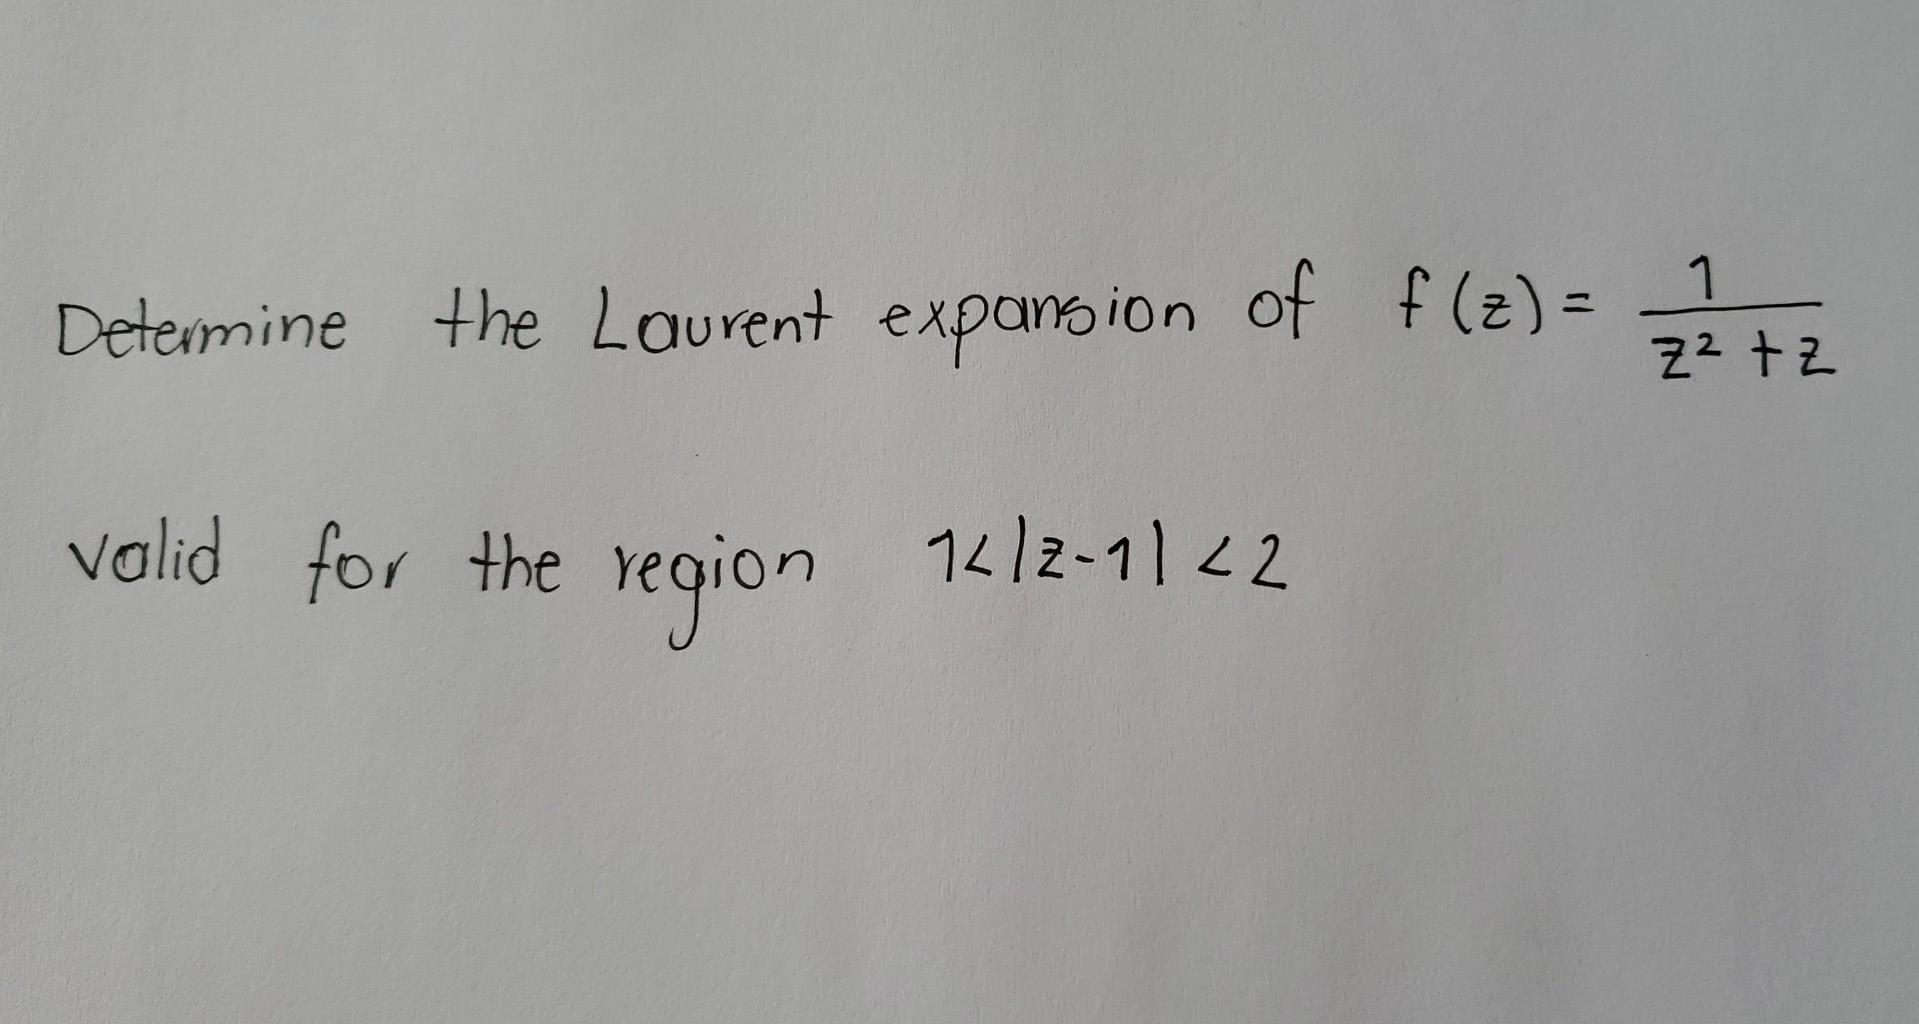 Determine the Laurent expansion of f(z) = 1/(z² + z)
valid for the region 1<|z-1|<2